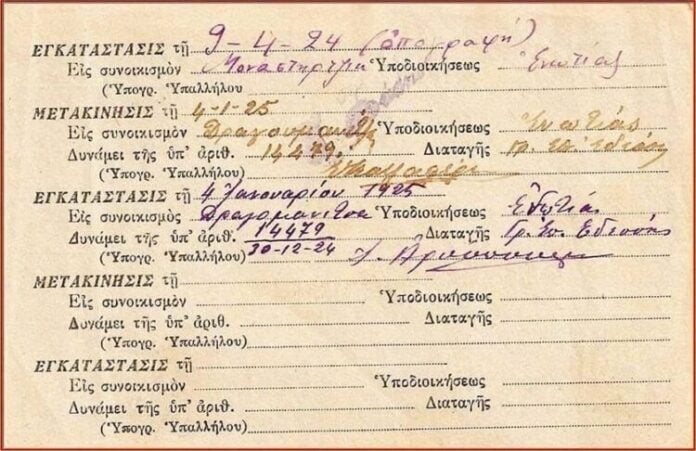 ΕΓΚΑΤΑΣΤΑΣΙΣ τῇ 9-4-24 (ἀπογραφή)
Εἰς συνοικισμὸν Μοναστηρτζίκ Ὑποδιοικήσεως Ἐνωτίας
(Ὑπογρ. Ὑπαλλήλου)
ΜΕΤΑΚΙΝΗΣΙΣ τῇ 4-1-25
Εἰς συνοικισμὸν Ὑποδιοικήσεως Ἐνωτίας
Δυνάμει τῆς ὑπ' ἀριθ. 14479 Διαταγῆς
(Ὑπογρ. Ὑπαλλήλου)
ΕΓΚΑΤΑΣΤΑΣΙΣ τῇ 4 Ἰανουαρίου 1925
Εἰς συνοικισμὸς Δραγομανιτσα Ὑποδιοικήσεως Ἐνωτία
Δυνάμει τῆς ὑπ' ἀριθ. 14479 Διαταγῆς Γρ. Ἐπ. Ἐδέσσης
(Ὑπογρ. Ὑπαλλήλου) 30-12-24
ΜΕΤΑΚΙΝΗΣΙΣ τῇ
Εἰς συνοικισμὸν Ὑποδιοικήσεως
Δυνάμει τῆς ὑπ' ἀριθ. Διαταγῆς
(Ὑπογρ. Ὑπαλλήλου)
ΕΓΚΑΤΑΣΤΑΣΙΣ τῇ
Εἰς συνοικισμὸν Ὑποδιοικήσεως
Δυνάμει τῆς ὑπ' ἀριθ. Διαταγῆς
(Ὑπογρ. Ὑπαλλήλου)